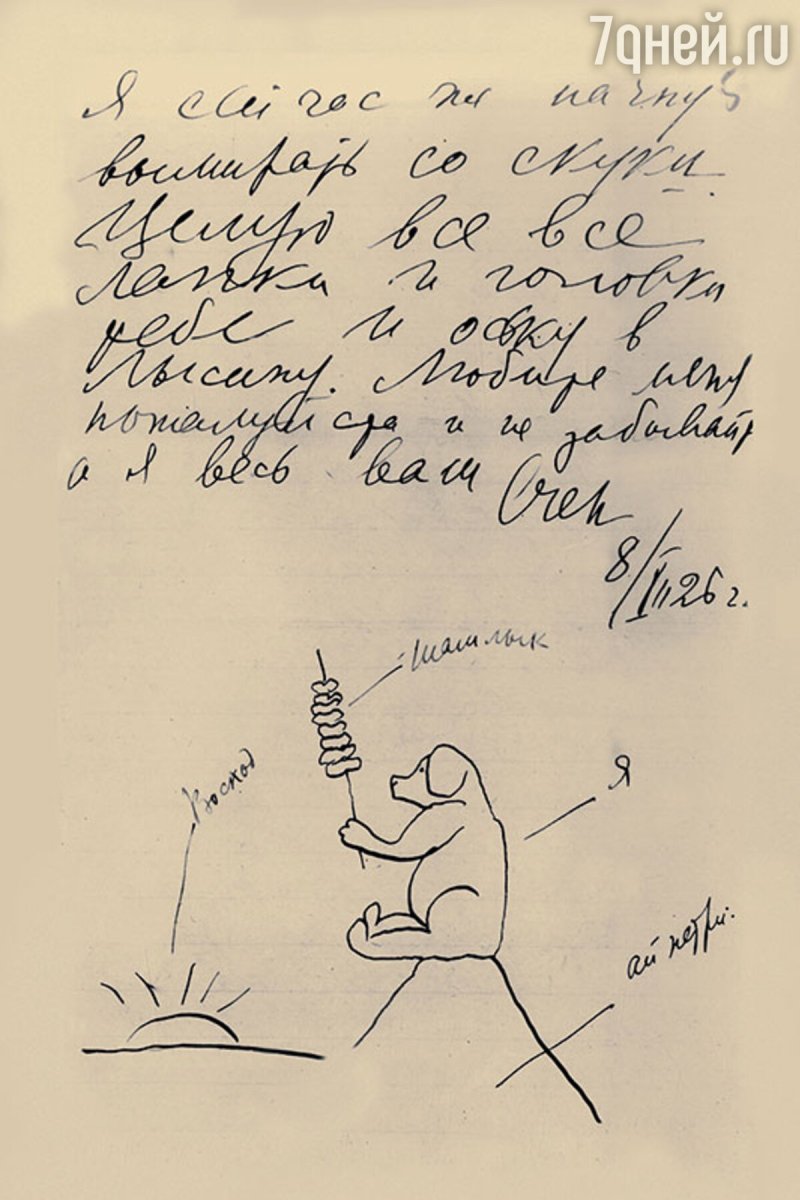 7дней.ru
Я сейчас же начну
вымирать со скуки.
Целую все все
лапки и головки
тебе и Оську в
лысину. Любите меня
пожалуйста и не забывайте
а я весь ваш Счен
8/VII 26 г.
шашлык
Восход
Я
ай петри.